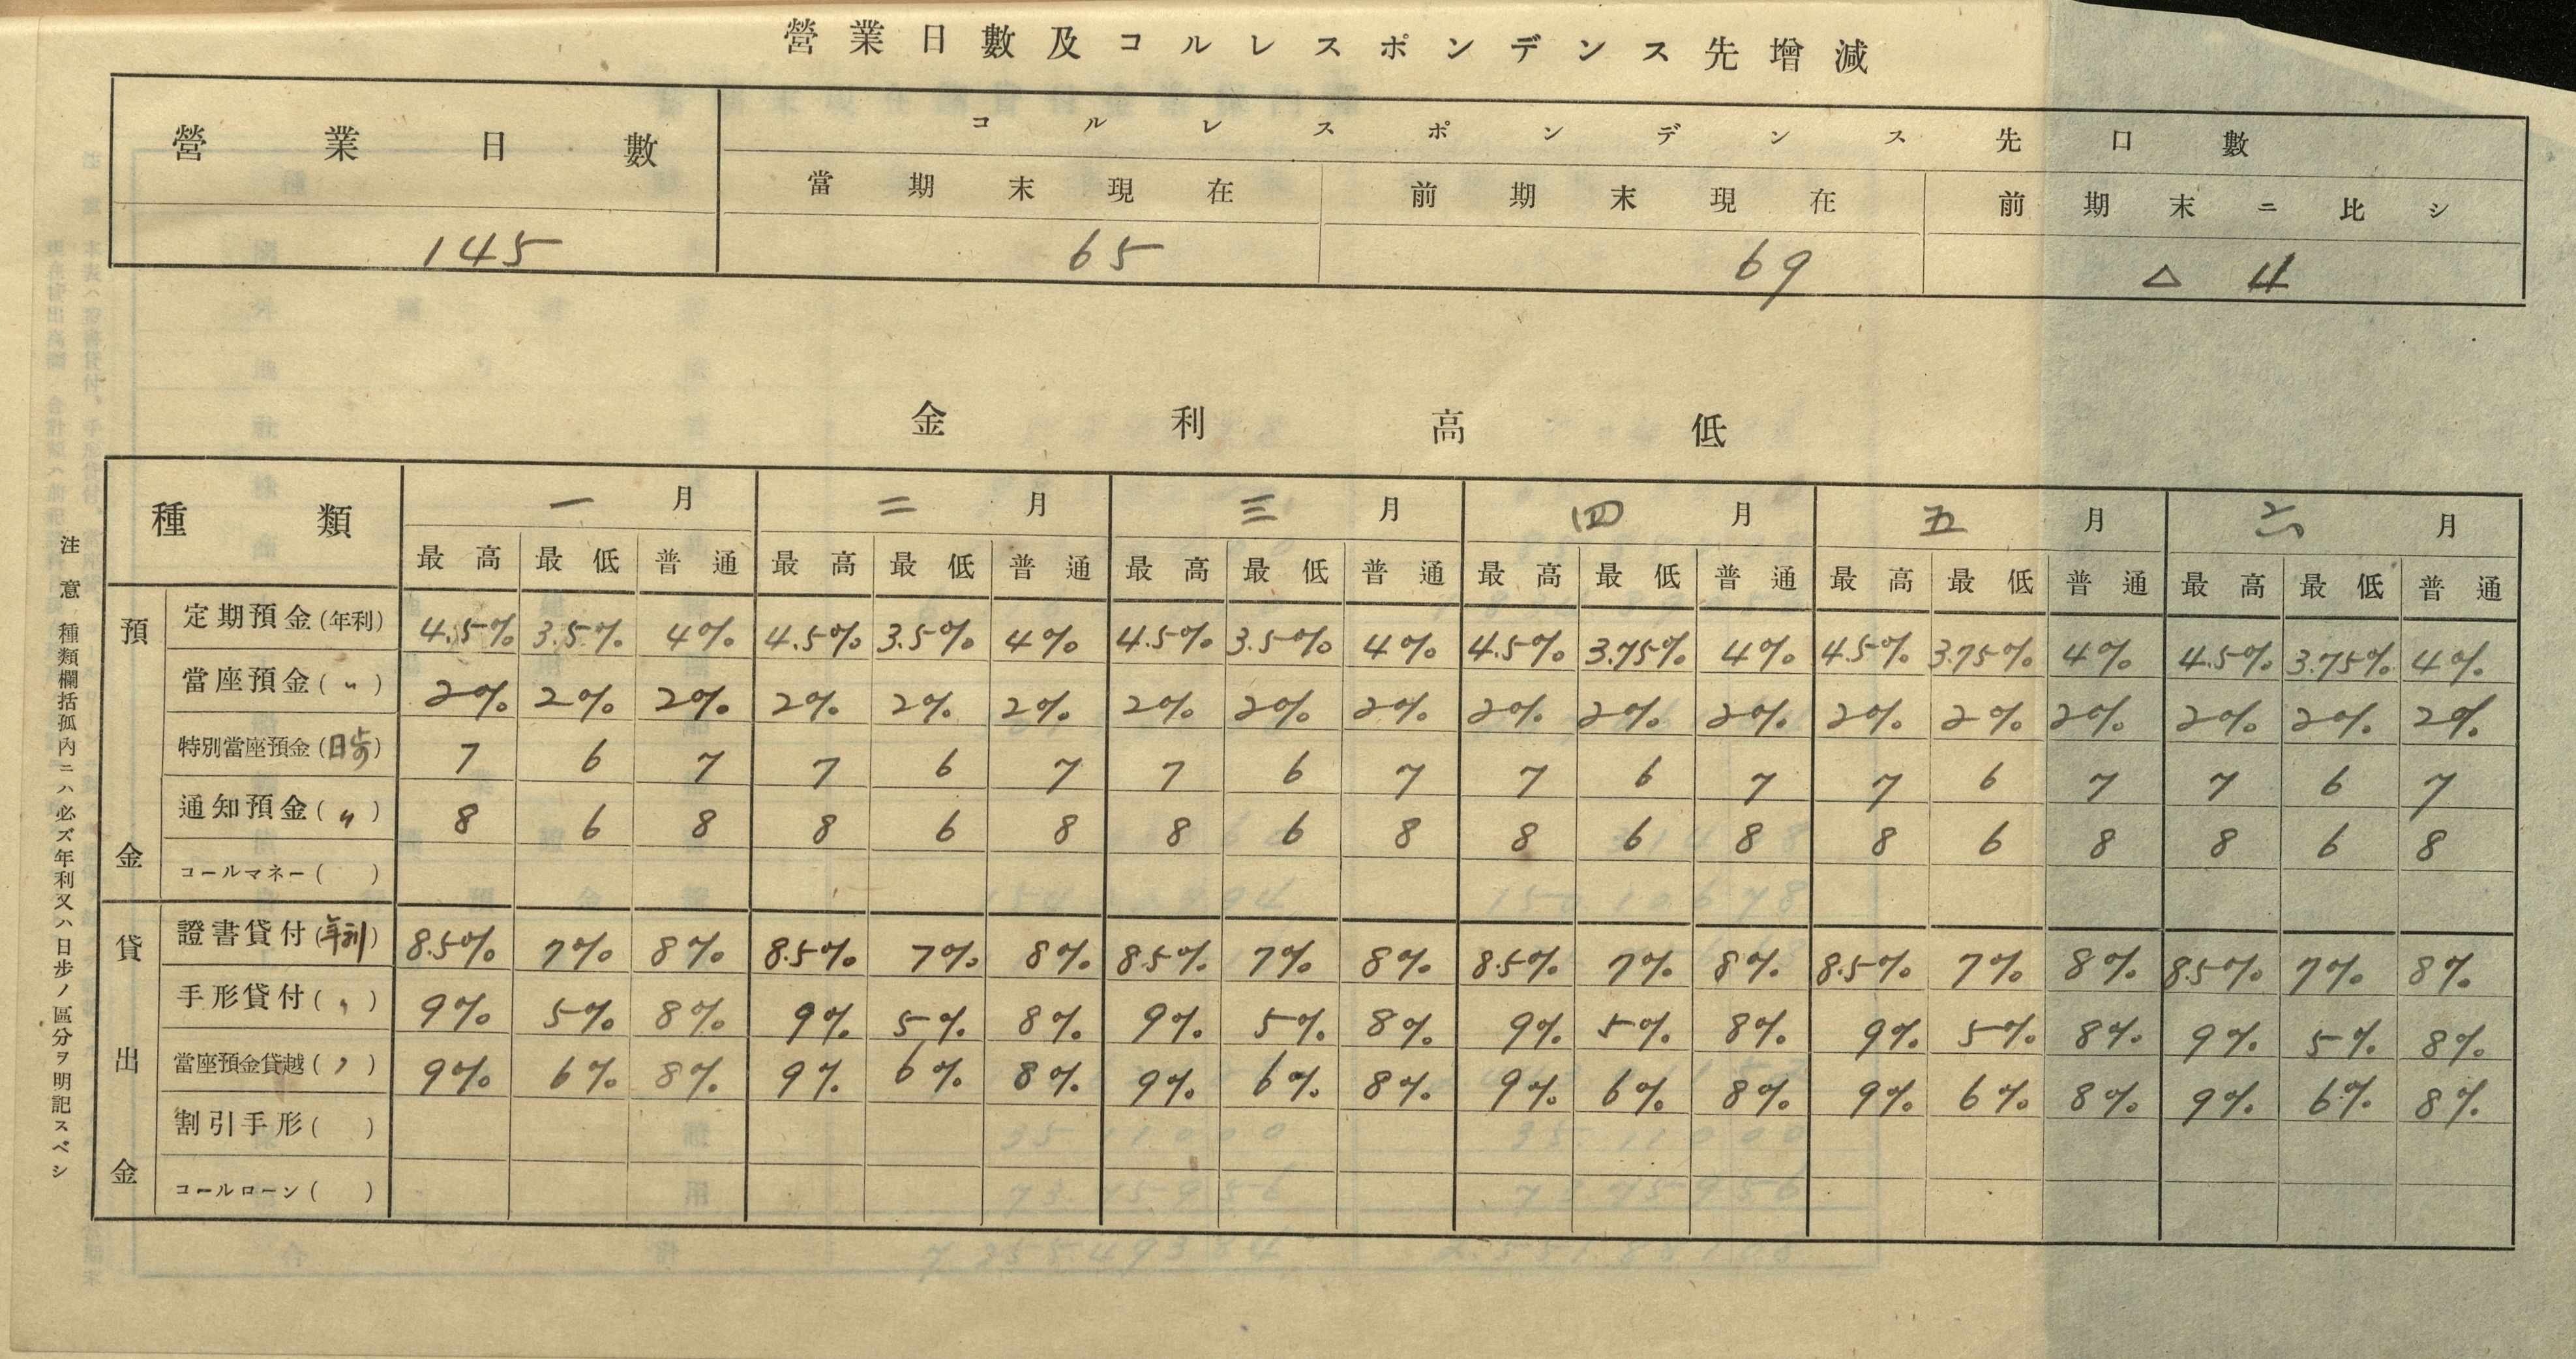 營業日數及コルレスポンデンス先增減
營業日數 コルレスポンデンス先口數
當期末現在 前期末現在 前期末ニ比シ
145 65 69 △ 4
金利高低
種類 一月 二月 三月 四月 五月 六月
最高 最低 普通 最高 最低 普通 最高 最低 普通 最高 最低 普通 最高 最低 普通 最高 最低 普通
預金
定期預金(年利) 4.5% 3.5% 4% 4.5% 3.5% 4% 4.5% 3.5% 4% 4.5% 3.75% 4% 4.5% 3.75% 4% 4.5% 3.75% 4%
當座預金(〃) 2% 2% 2% 2% 2% 2% 2% 2% 2% 2% 2% 2% 2% 2% 2% 2% 2% 2%
特別當座預金(日步) 7 6 7 7 6 7 7 6 7 7 6 7 7 6 7 7 6 7
通知預金(〃) 8 6 8 8 6 8 8 6 8 8 6 8 8 6 8 8 6 8
コールマネー( )
貸出金
證書貸付(年利) 8.5% 7% 8% 8.5% 7% 8% 8.5% 7% 8% 8.5% 7% 8% 8.5% 7% 8% 8.5% 7% 8%
手形貸付(〃) 9% 5% 8% 9% 5% 8% 9% 5% 8% 9% 5% 8% 9% 5% 8% 9% 5% 8%
當座預金貸越(〃) 9% 6% 8% 9% 6% 8% 9% 6% 8% 9% 6% 8% 9% 6% 8% 9% 6% 8%
割引手形( )
コールローン( )
注意 種類欄括孤內ニハ必ズ年利又ハ日步ノ區分ヲ明記スベシ